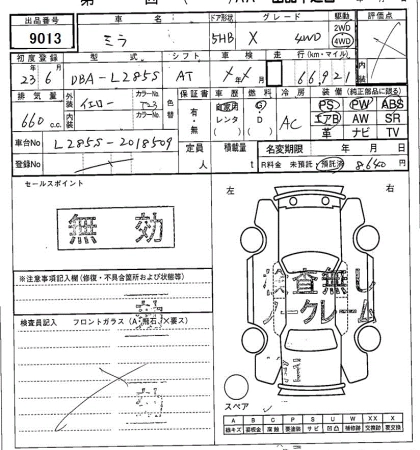 出品番号 車名 ドア形状 グレード 駆動 評価点
9013 ミラ 5HB X 4WD 2WD 4WD
初度登録 型式 シフト 車検 走行(km・マイル) 内装
23年6月 DBA-L285S AT 年 月 66,921
排気量 外装 カラーNo. 色替 保証書 車歴 燃料 冷房 装備(純正部品に限る)
660 c.c. イエロー T23 有・無 自家用 レンタ G D AC PS PW ABS
内装 カラーNo. エアB AW SR
革 ナビ TV
車台No L285S-2018509 定員 人 積載量 t 名変期限 年 月 日
登録No R料金 未預託 預託済 8640円
セールスポイント
無効
左 右
※注意事項記入欄(修復・不具合箇所および状態等)
検査無し
ノークレーム
検査員記入 フロントガラス(A・飛石、X要ス)
スペア
A B C P S U W X XX
線キズ 板金 腐食 要塗装 サビ 凹凸 補修跡 要交換 交換済